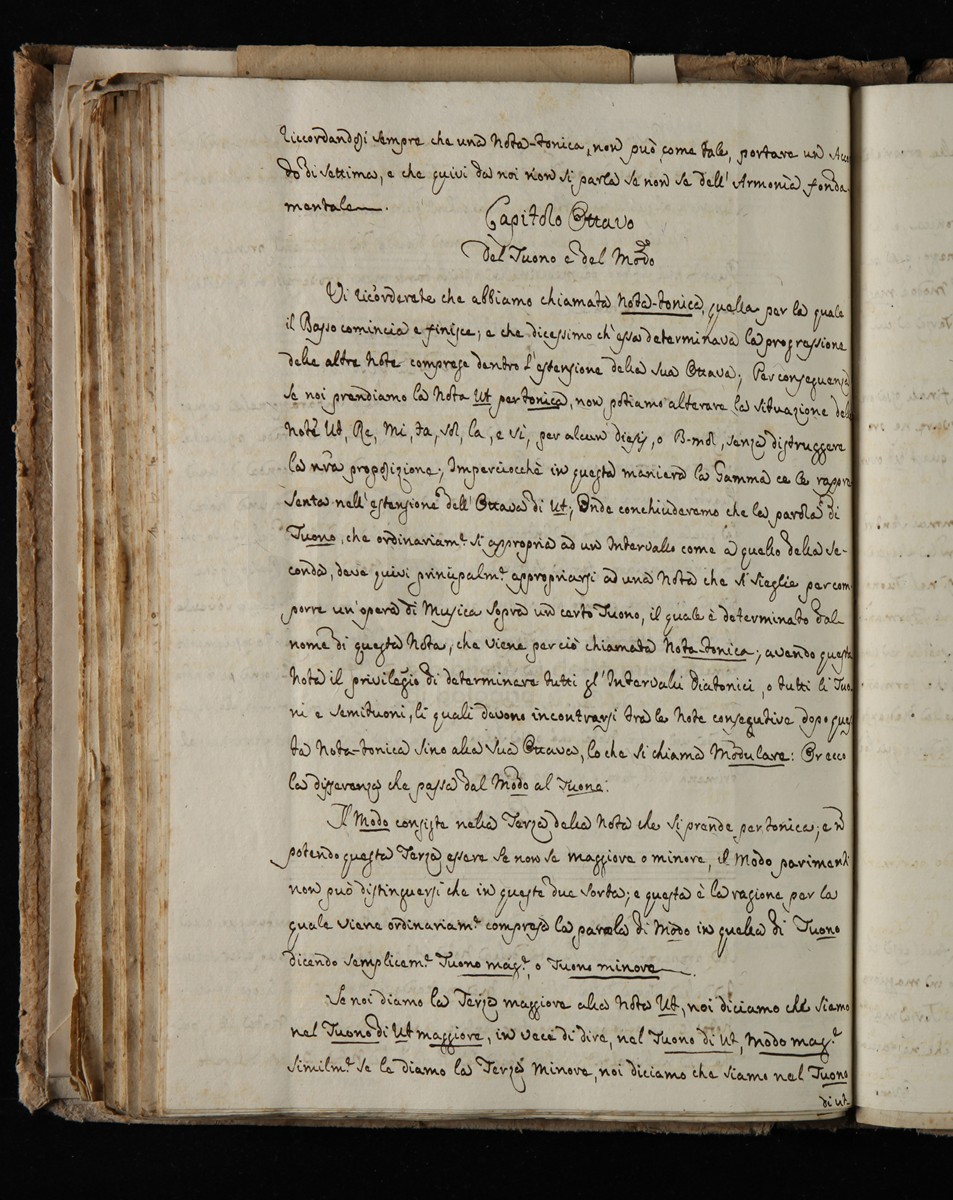 riccordandosi sempre che una Nota-tonica, non può, come tale, portare un Acco
do di Settima, e che quivi da noi non si parla se non se dell'Armonia fonda
mentale.
Capitolo Ottavo
Del Tuono e del Modo
Vi ricorderete che abbiamo chiamata Nota-tonica, quella per la quale
il Basso comincia e finisce; e che dicessimo ch'essa determinava la progressione
delle altre Note comprese dentro l'estensione della sua Ottava; Per conseguenza
se noi prendiamo la Nota Ut per tonica, non potiamo alterare la situazione delle
Note Ut, Re, Mi, fa, sol, la, e si, per alcun diesis, o B-mol, senza distruggere
la nr̃a proposizione; Imperciocchè in questa maniera la Gamma ce le rappre
senta nell'estensione dell'Ottava di Ut; Onde conchiuderemo che la parola di
Tuono, che ordinariamᵉ si appropria ad un Intervallo come a quello della Se-
conda, deve quivi principalmᵉ appropriarsi ad una Nota che si sieglie per com
porre un'opera di Musica sopra un certo Tuono, il quale è determinato dal
nome di questa Nota, che viene perciò chiamata Nota-tonica; avendo questa
Nota il privilegio di determinare tutti gl'Intervalli Diatonici, o tutti li Tuo
ni e Semituoni, li quali devono incontrarsi trà le Note consegutive dopo ques
ta Nota-tonica sino alla sua Ottava, lo che si chiama Modulare: Or ecco
la differenza che passa dal Modo al Tuono.
Il Modo consiste nella Terza della Nota che si prende per tonica; e ñ
potendo questa Terza essere se non se maggiore o minore, il Modo parimenti
non può distinguersi che in queste due sorta; e questa è la ragione per la
quale viene ordinariamᵉ compresa la parola di Modo in quella di Tuono
dicendo semplicemᵉ Tuono magᵉ, o Tuono minore.
Se noi diamo la Terza maggiore alla Nota Ut, noi diciamo che siamo
nel Tuono di Ut maggiore, in vece di dire, nel Tuono di Ut, Modo magᵉ
Similmᵉ se le diamo la Terza Minore, noi diciamo che siamo nel Tuono
di ut